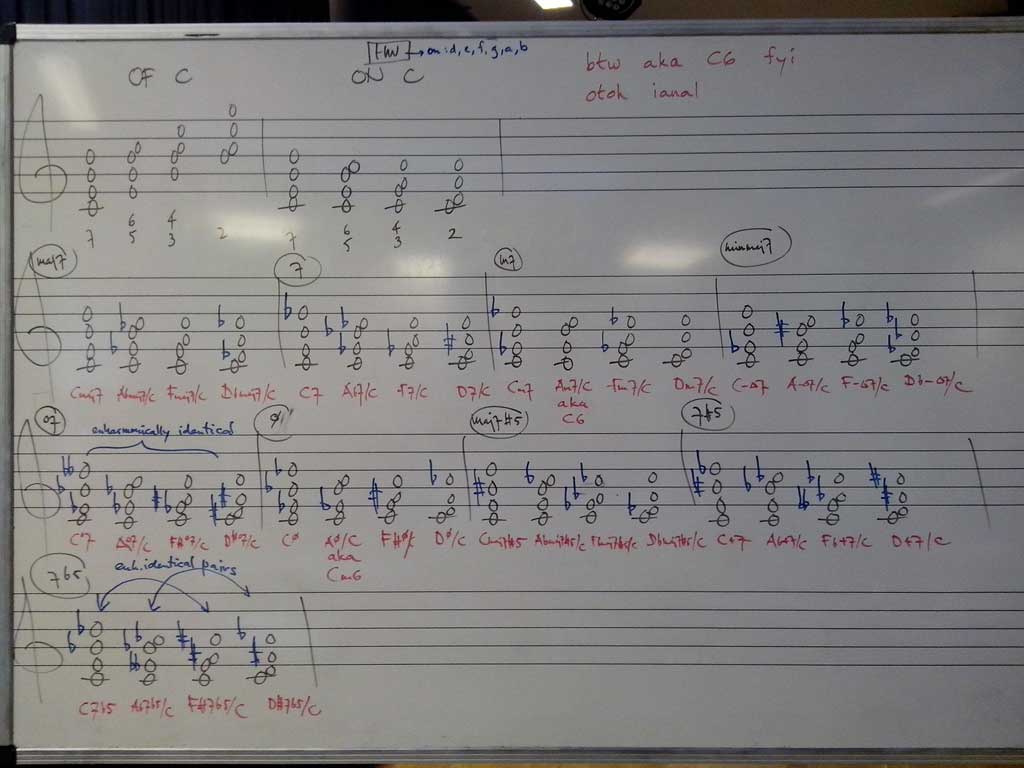 HW → on: d, e, f, g, a, b
OF C ON C
btw aka C6 fyi
otoh ianal
7 6 5 4 3 2 7 6 5 4 3 2
maj7 7 m7 minmaj7
Cmaj7 Abmaj7/C Fmaj7/C Dbmaj7/C C7 Ab7/C F7/C D7/C Cm7 Am7/C Fm7/C Dm7/C C-Δ7 A-Δ7/C F-Δ7/C Db-Δ7/C
aka
C6
o7 enharmonically identical ø maj7#5 7#5
C°7 A°7/C F#°7/C D#°7/C Cø Aø/C F#ø/C Dø/C Cmaj7#5 Abmaj7#5/C Dbmaj7#5/C C+7 Ab+7/C Fb+7/C D+7/C
aka
Cm6
7b5 enh. identical pairs
C7b5 Ab7b5/C F#7b5/C D#7b5/C